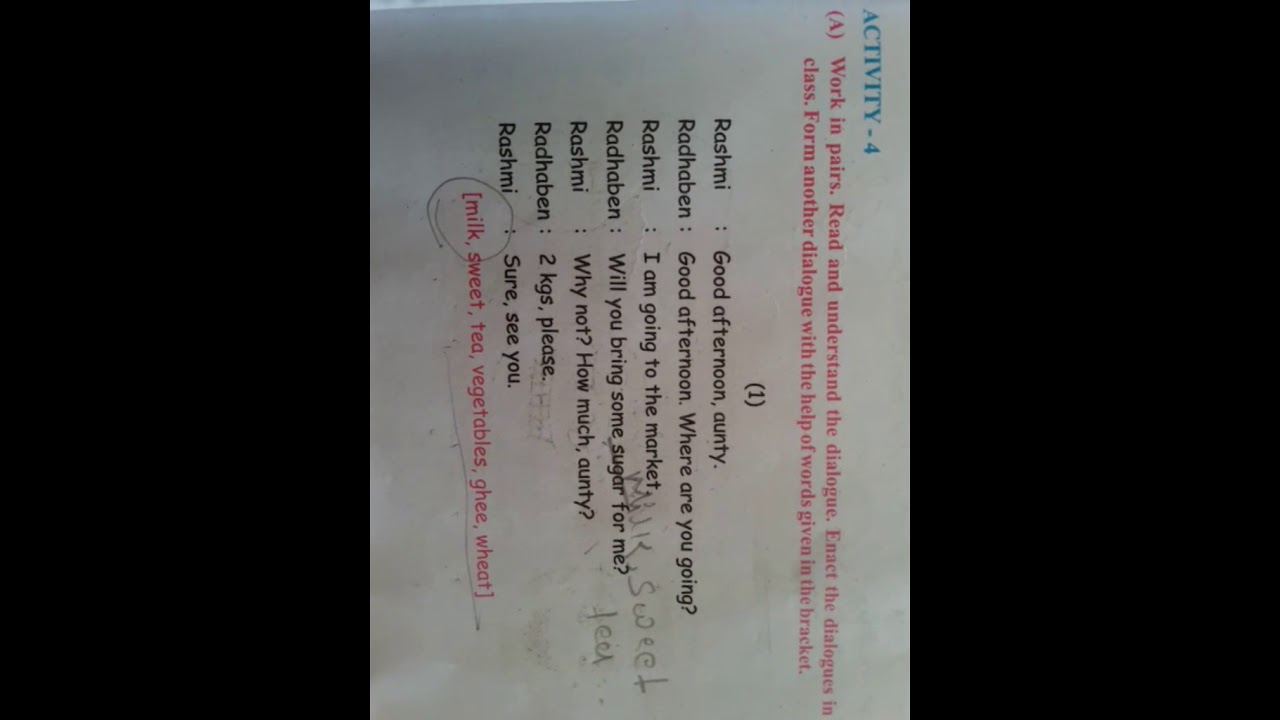 ACTIVITY - 4
(A) Work in pairs. Read and understand the dialogue. Enact the dialogues in
class. Form another dialogue with the help of words given in the bracket.
(1)
Rashmi : Good afternoon, aunty.
Radhaben : Good afternoon. Where are you going?
Rashmi : I am going to the market.
Milk, Sweet
Radhaben : Will you bring some sugar for me?
tea
Rashmi : Why not? How much, aunty?
Radhaben : 2 kgs, please.
Rashmi : Sure, see you.
[milk, sweet, tea, vegetables, ghee, wheat]